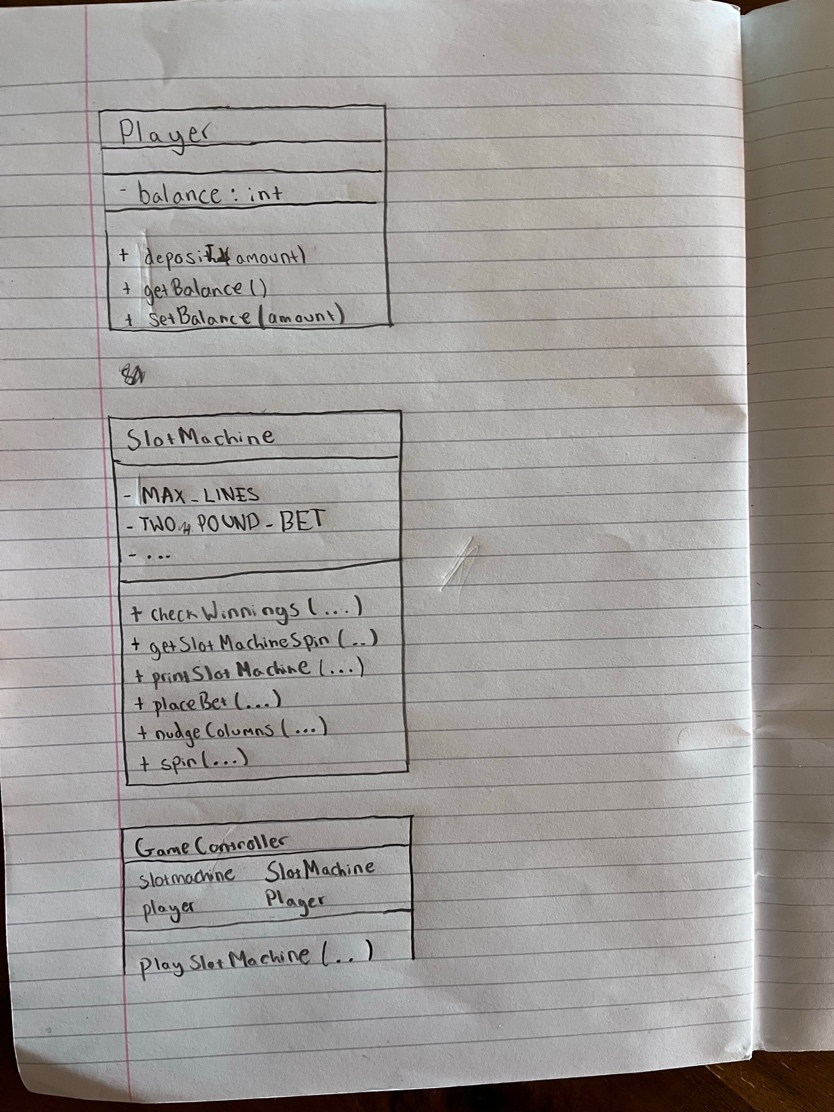 Player
- balance : int
+ deposit( amount)
+ getBalance ()
+ SetBalance (amount)
SlotMachine
- MAX_LINES
- TWO_POUND_BET
- ...
+ checkWinnings (...)
+ getSlotMachineSpin (..)
+ printSlotMachine (...)
+ placeBet (...)
+ nudgeColumns (...)
+ spin (...)
GameController
slotmachine SlotMachine
player Player
PlaySlotMachine (..)